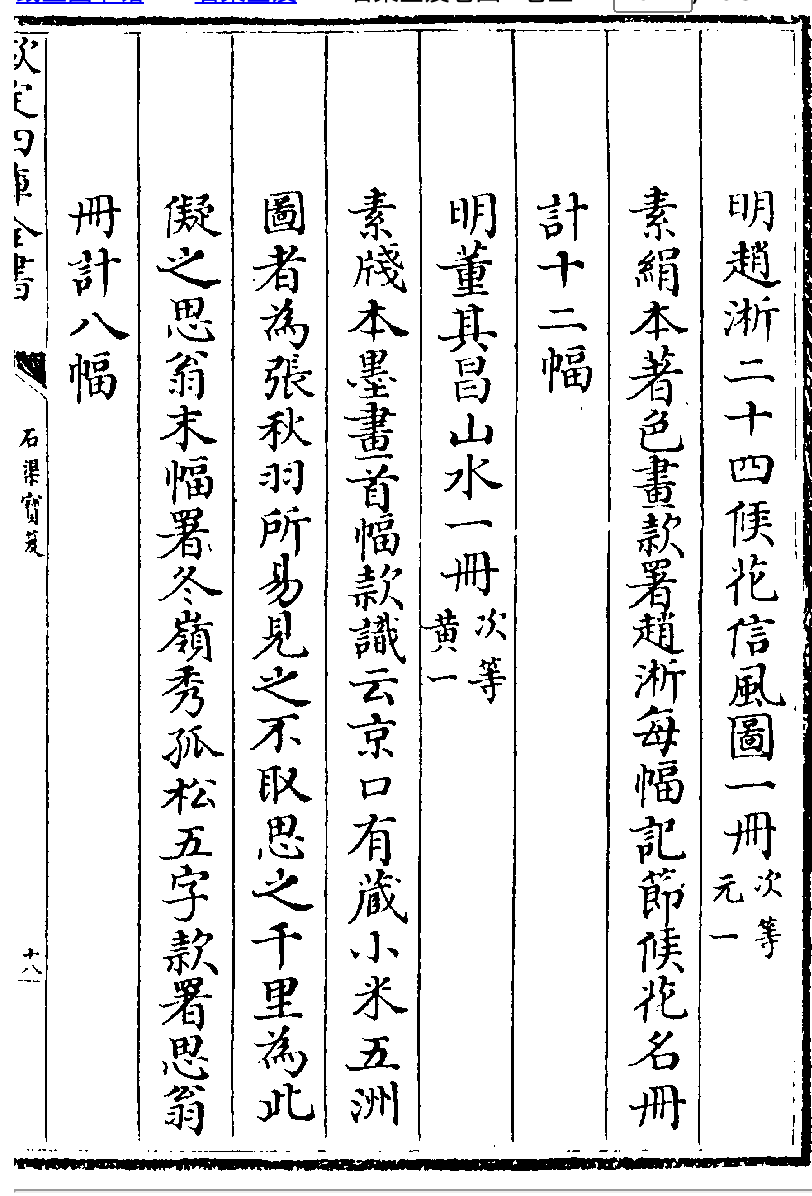 明趙淅二十四候花信風圖一冊次等
元一
素絹本著色畫款署趙淅每幅記節候花名冊
計十二幅
明董其昌山水一冊次等
黄一
素牋本墨畫首幅款識云京口有蔵小米五洲
圖者為張秋羽所易見之不取思之千里為此
儗之思翁末幅署冬嶺秀孤松五字款署思翁
冊計八幅
欽定四庫全書
石渠寶笈
十八